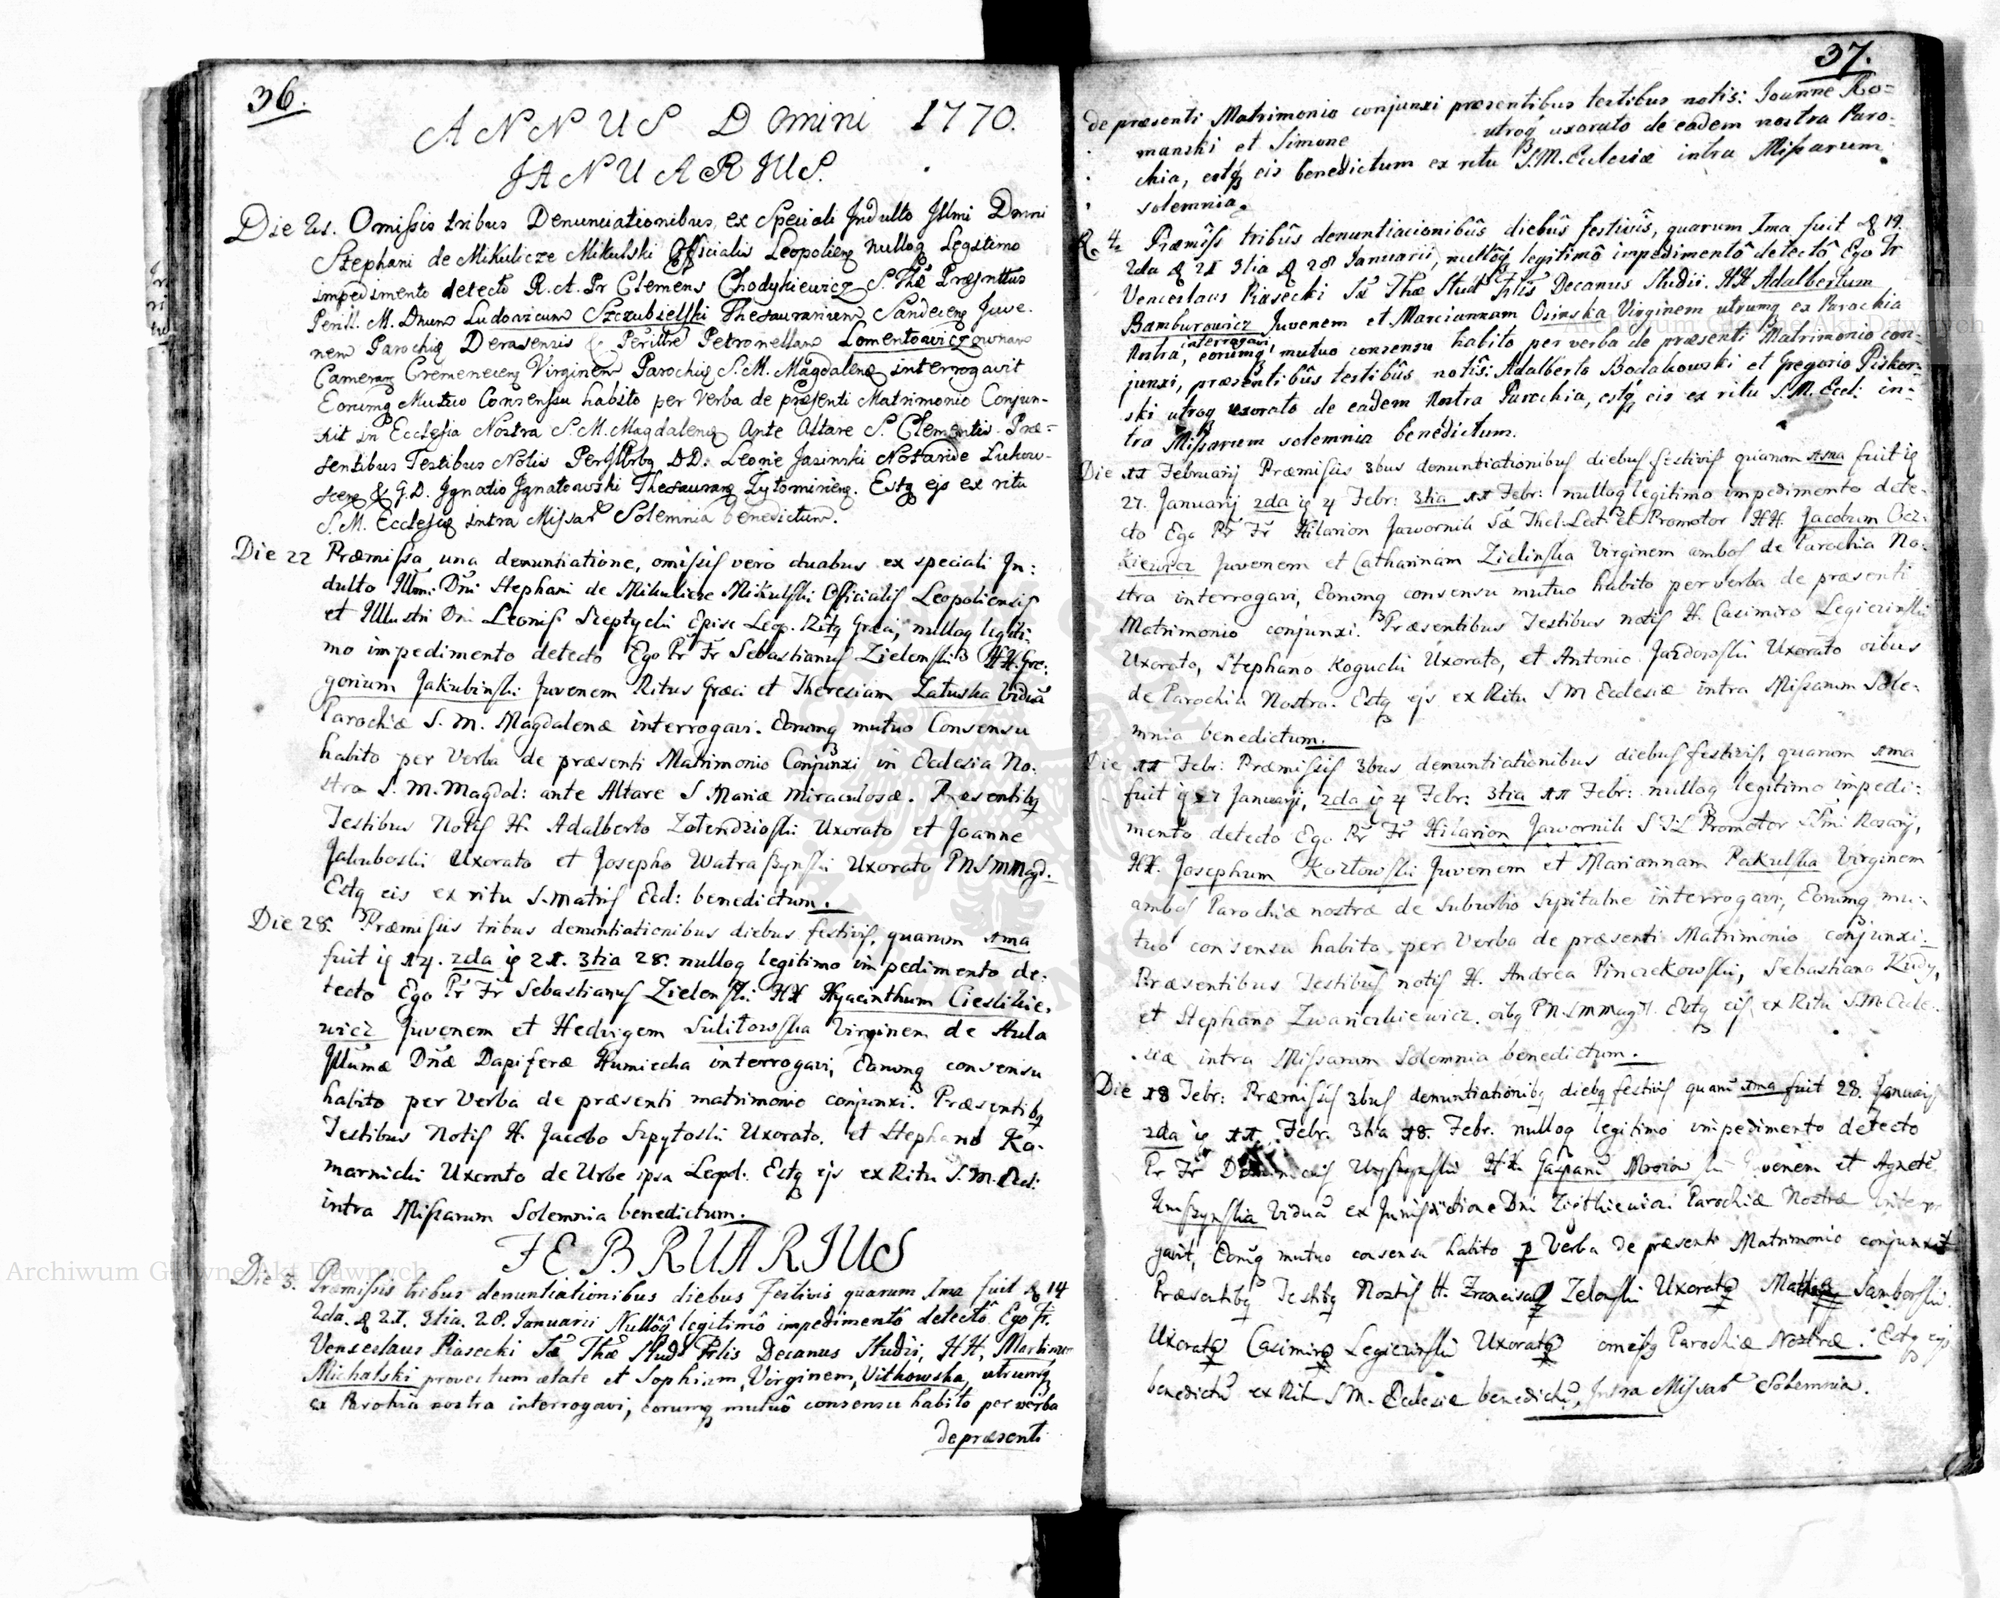 36.
ANNUS Domini 1770.
JANUARIUS.
Die 21. Omissis tribus Denunciationibus, ex Speciali Indulto Illmi Dnni
Stephani de Mikulicze Mikulski Officialis Leopolieng nulloq Legitimo
impedimento detecto R. A. Pr Clemens Chodykiewicz S. Thæ Præsnttus
Perill. M. Dnum Ludovicum Szczubielski Thesaurarium Sandecieng Juve-
nem Parochiæ Derasensis & Perillre Petronellam Lomentowiczownam
Camerarz Cremenecieng Virginem Parochiæ S. M. Magdalenæ interrogavit
Eorumq Mutuo Consensu habito per Verba de præsenti Matrimonio Conjun-
xit in Ecclesia Nostra S. M. Magdalenæ Ante Altare S. Clementis. Præ=
sentibus Testibus Notis Perillrbq DD: Leone Jasinski Notaride Lukow-
sceng & G. D. Ignatio Ignatowski Thesaurarz Zytomirieng. Estq ejs ex ritu
S. M. Ecclesiæ intra Missar Solemnia benedictum.
Die 22 Præmissa una denuntiatione, omissis vero duabus ex speciali In:
dulto Illmi Dni Stephani de Mikulicze Mikulski Officialis Leopoliensis
et Illustri Dni Leonis Szeptycki Episc Leop. Ritq Græci, nulloq legiti:
mo impedimento detecto Ego Pr Fr Sebastianus Zielenski HH. Gre:
gorium Jakubinski Juvenem Ritus Græci et Theresiam Zatuska Viduã
Parochiæ S. M. Magdalenæ interrogavi. Eorumq mutuo Consensu
habito per Verba de præsenti Matrimonio Conjunxi in Ecclesia No:
stra S. M. Magdal: ante Altare S Mariæ Miraculosæ. Præsentibq
Testibus Notis H. Adalberto Zotendzioski Uxorato et Joanne
Jakuboski Uxorato et Josepho Watraszynski Uxorato PNSMMagd.
Estq eis ex ritu S. Matris Eccl: benedictum.
Die 28. Præmissis tribus denuntiationibus diebus festivis, quarum 1ma
fuit iq 14. 2da iq 21. 3tia 28. nulloq legitimo impedimento de:
tecto Ego Pr Fr Sebastianus Zielenski HH Hyacinthum Cieslikie:
wicz Juvenem et Hedvigem Sulitowska Virginem de Aula
Illumæ Dnæ Dapiferæ Humiecka interrogavi, Eorumq consensu
habito per Verba de præsenti matrimonio conjunxi. Præsentibq
Testibus Notis H. Jacobo Szpytoski Uxorato, et Stephano Ko-
marnicki Uxorato de Urbe ipsa Leopl. Estq ejs ex Ritu S. M. Eccl:
intra Missarum Solemnia benedictum.
FEBRUARIUS
Die 3. Præmissis tribus denuntiationibus diebus Festivis quarum 1ma fuit & 14
2da. & 21. 3tia. 28. Januarii Nullôq legitimô impedimentô detectô Ego Fr.
Venceslaus Piasecki Sæ Thæ Stud Prlis Decanus Studii, HH, Martinum
Michalski provectum ætate et Sophiam, Virginem, Vitkowska, utrumq
ex Parohia nostra interrogavi, eorumq mutuô consensu habito per verba
de præsenti
37.
de præsenti Matrimonio conjunxi præsentibus testibus notis: Joanne Ro=
manski et Simone utroq uxorato de eadem nostra Paro-
chia, estq eis benedictum ex ritu S. M. Ecclesiæ intra Missarum
solemnia.
D. 4. Præmiss tribûs denuntiacionibûs diebûs festivîs, quarum 1ma fuit & 19.
2da & 21 3tia & 28 Januarii, nullôq legitimô impedimentô detectô Ego Fr
Venceslaus Piasecki Sæ Thæ Stud Prlis Decanus Studii. HH Adalbertum
Bamburowicz Juvenem et Mariannam Osinska Virginem utrumq ex Parochia
Nostra, interrogavi, eorumq mutuo consensu habito per verba de præsenti Matrimonio con-
junxi, præsentibûs testibûs notis: Adalberto Bodakowski et Gregorio Piskor-
ski utroq uxorato de eadem Nostra Parochia, estq eis ex ritu S. M. Eccl: in-
tra Missarum solemnia benedictum.
Die 11 Februarij Præmissis 3bus denuntiationibus diebus festivis quarum 1ma fuit iq
27. Januarij 2da iq 4 Febr: 3tia 11 Febr: nulloq legitimo impedimento dete-
cto Ego Pr Fr Hilarion Jawornik Sæ Thel. Lect: et Promotor HH. Jacobum Ocz-
kiewicz Juvenem et Catharinam Zielinska Virginem ambos de Parochia No-
stra interrogavi, Eorumq consensu mutuo habito per verba de præsenti
Matrimonio conjunxi. Præsentibus Testibus notis H. Casimiro Legiezinski
Uxorato, Stephano Koguchi Uxorato, et Antonio Jazdowski Uxorato oibus
de Parochia Nostra. Estq ejs ex Ritu S M Ecclesiæ intra Missarum Sole-
mnia benedictum.
Die 11 Febr: Præmissis 3bus denuntiationibus diebus festivis, quarum 1ma
fuit iq 27 Januarij, 2da iq 4 Febr: 3tia 11 Febr: nulloq legitimo impedi:
mento detecto Ego Pr Fr Hilarion Jawornik S T L Promotor SSmi Rosarij,
HH. Josephum Kozlowski Juvenem et Mariannam Pakulska Virginem
ambos Parochiæ nostræ de Suburbio Szpitalne interrogavi, Eorumq mu-
tuo consensu habito per Verba de præsenti Matrimonio conjunxi.
Præsentibus Testibus notis H. Andrea Pinczekowski, Sebastiano Kudy,
et Stephano Zwanczkiewicz oibq PN SMMagd. Estq ejs ex Ritu S. M. Eccle-
siæ intra Missarum Solemnia benedictum.
Die 18 Febr: Præmissis 3bus denuntiationibq diebq festivis quarũ 1ma fuit 28. Januarij
2da iq 11. Febr. 3tia 18. Febr. nulloq legitimo impedimento detecto
Pr Fr HH. Gasparũ Juvenem et Agnetẽ
Viduã ex Jurisdictione Dni Parochiæ Nostræ interro
gavit, Eorũq mutuo consensu habito p Verba de præsenti Matrimonio conjunxit
Præsentibq Testibq Noztis H. Francisco Zeloski Uxorato Samborski
Uxorato Casimiro Legiezinski Uxorato omibq Parochiæ Nostræ. Estq ejs
benedictũ ex Rit S M. Ecclesiæ benedictũ, Intra Missar Solemnia.
Archiwum Główne Akt Dawnych
Archiwum Główne Akt Dawnych